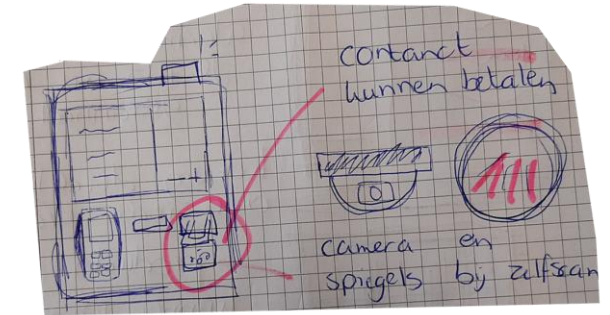 contanct
kunnen betalen
camera en
spiegels bij zelfscan